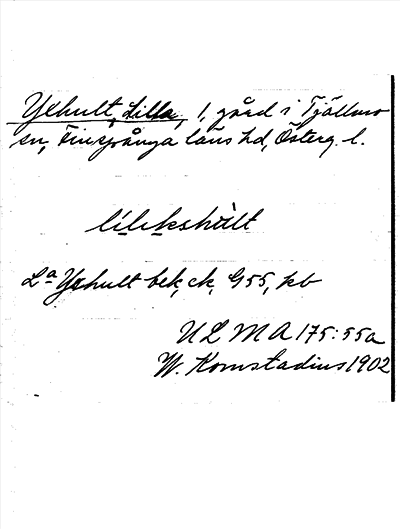 Yxhult, Lilla, 1, gård i Tjällmo
sn, Finspånga läns hd, Österg. l.
lílɩkshùlt
La Yxhult bek, ck, G55, kb
ULMA 175:55a
W. Komstadius 1902